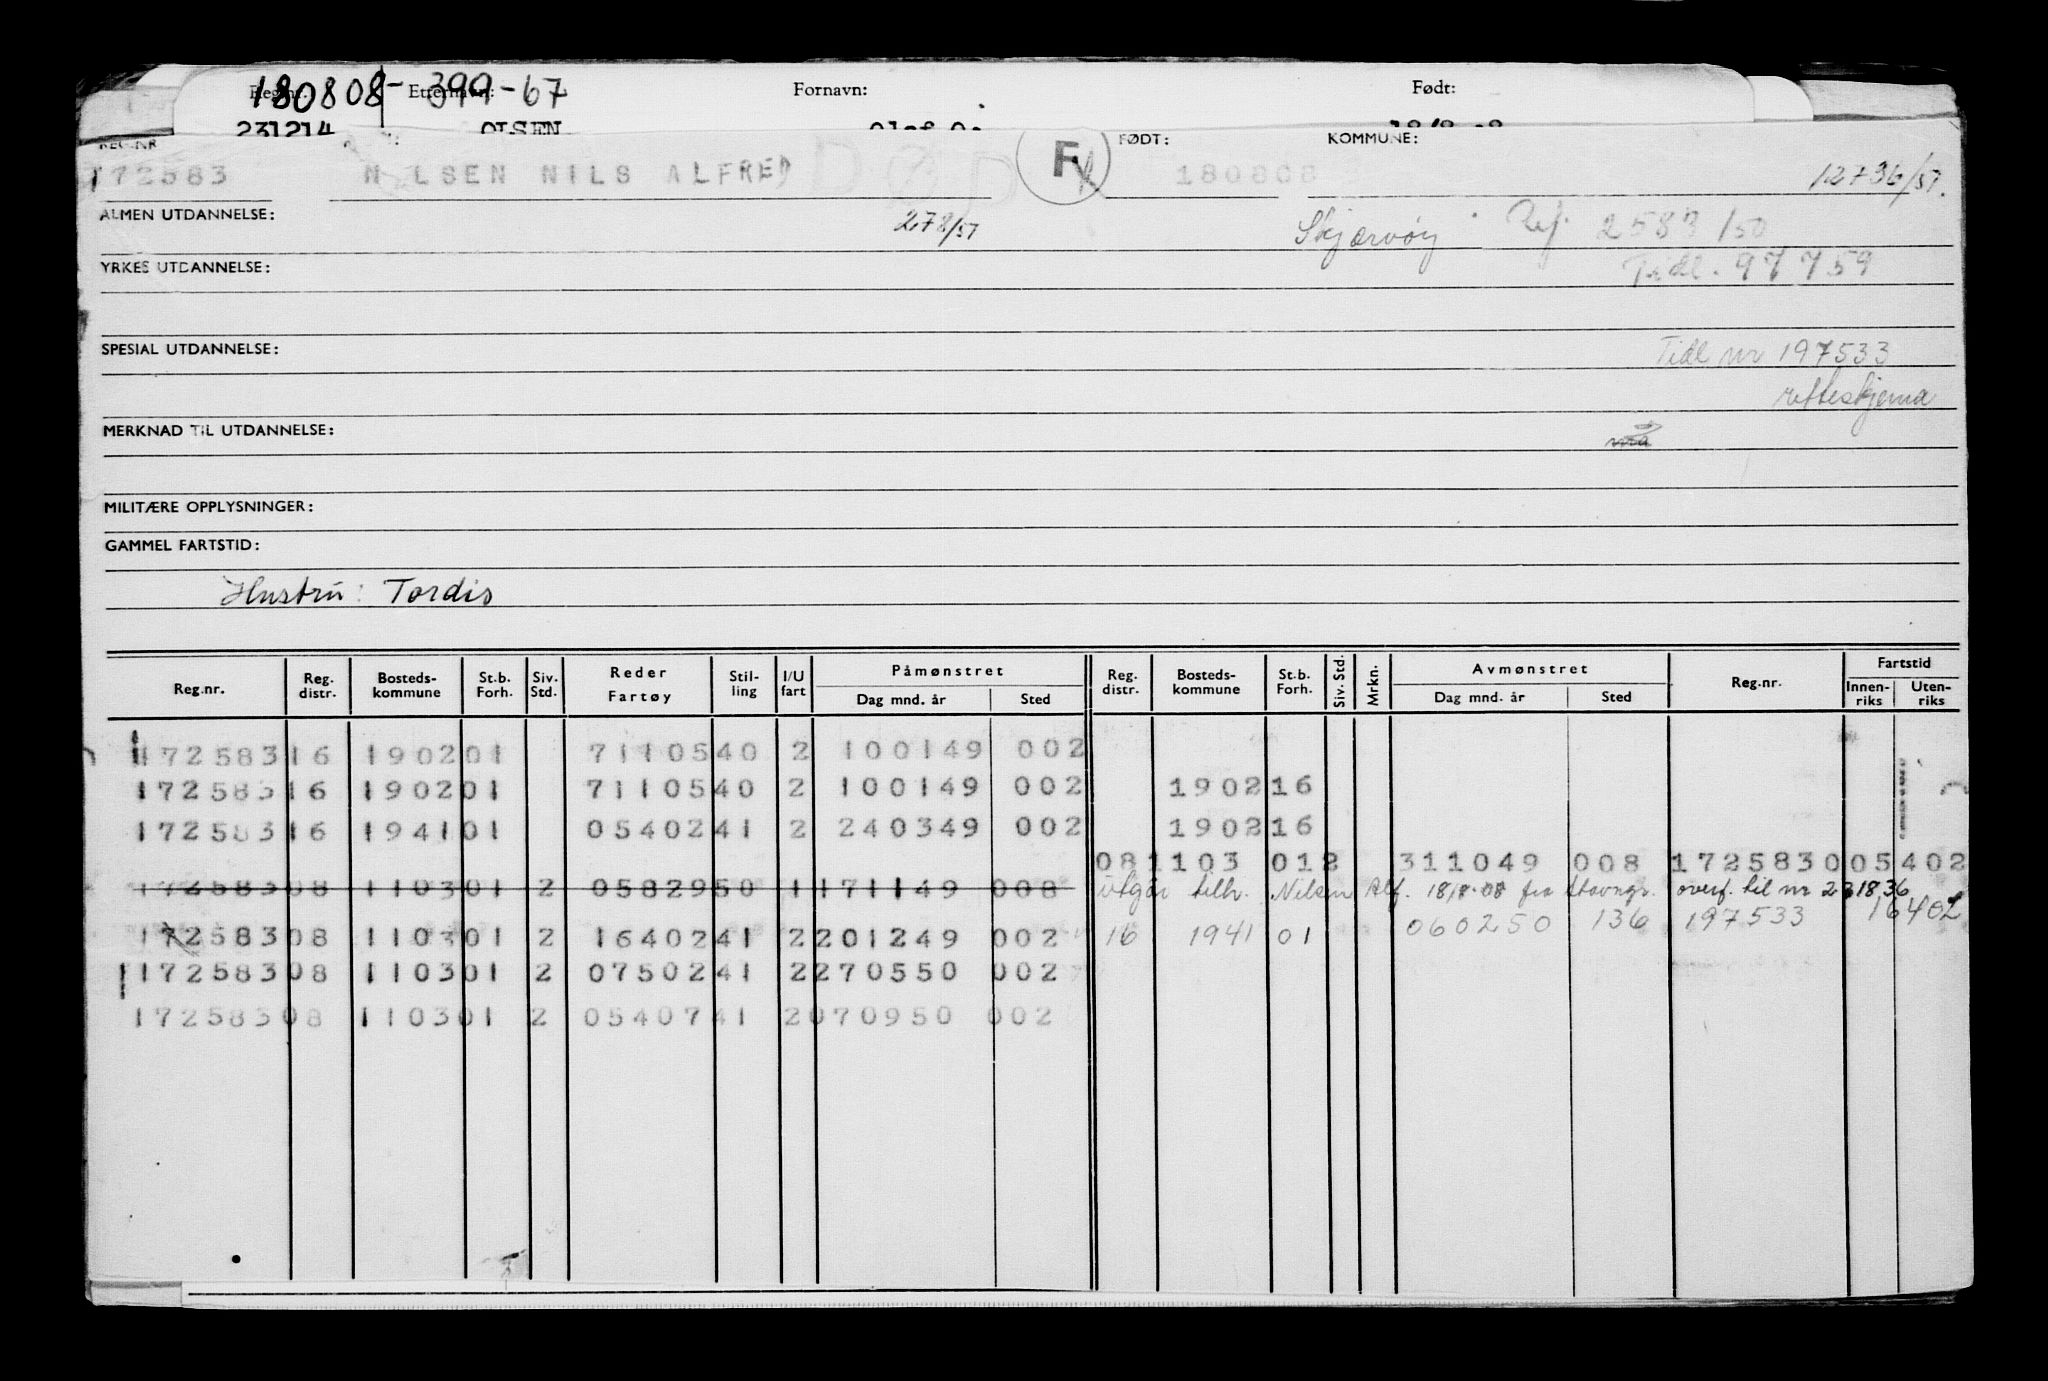 180808-399-67
Etternavn: Fornavn: Født:
231214 OLSEN
REG.NR FØDT: KOMMUNE:
172583 NILSEN NILS ALFRED DØD F 180808 12736/57.
ALMEN UTDANNELSE: 278/57 Skjærvøy Ref. 2583/50
YRKES UTDANNELSE: Tidl. 97759
SPESIAL UTDANNELSE: Tidl nr 197533
rulleskjema
MERKNAD TIL UTDANNELSE:
MILITÆRE OPPLYSNINGER:
GAMMEL FARTSTID:
Hustru: Tordis
Reg.nr. Reg. distr. Bosteds-kommune St.b. Forh. Siv. Std. Reder Fartøy Stil-ling I/U fart Påmønstret Dag mnd. år Sted Reg. distr. Bosteds-kommune St.b. Forh. Siv. Std. Mrkn. Avmønstret Dag mnd. år Sted Reg.nr. Fartstid Innen-riks Uten-riks
172583 16 1902 01 71105 40 2 100149 002
172583 16 1902 01 71105 40 2 100149 002 1902 16
172583 16 1941 01 05402 41 2 240349 002 1902 16
08 1103 01 2 311049 008 172583 005402
172583 08 1103 01 2 05829 50 1 171149 008 utgår tilh. Nilsen Alf. 18/8-08 fra Stavngr. overf. til nr 221836
172583 08 1103 01 2 16402 41 2 201249 002 16 1941 01 060250 136 197533 16402
172583 08 1103 01 2 07502 41 2 270550 002
172583 08 1103 01 2 05407 41 2 070950 002